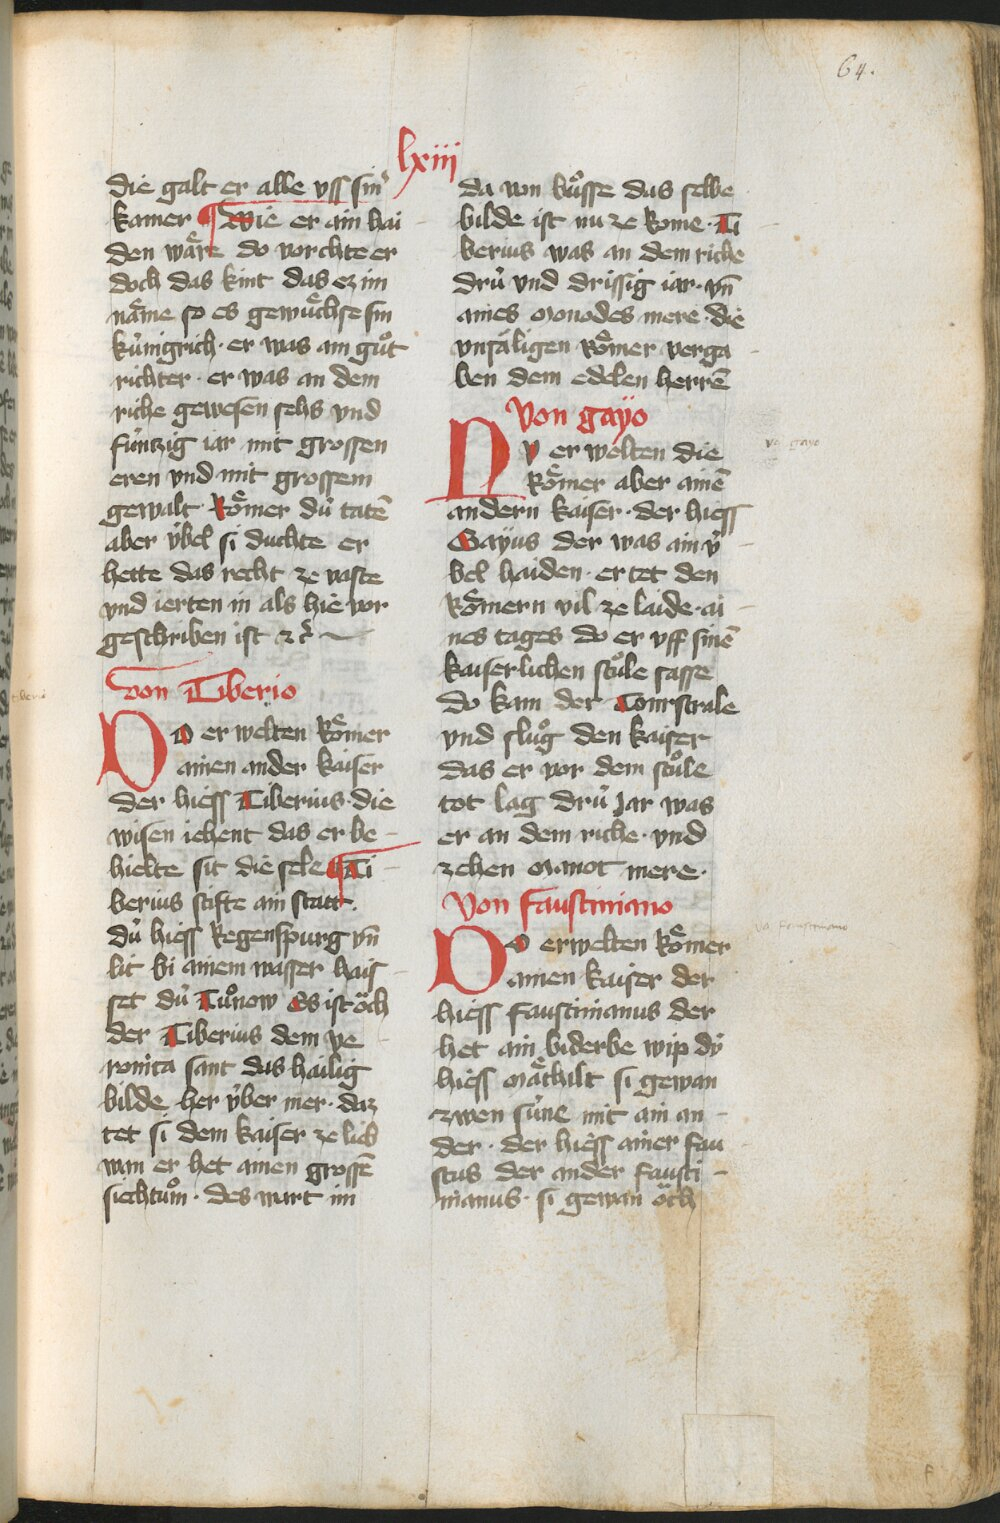 64.
lxiii
die galt er alle vss sinr̄
kamer ¶ Wie er ain hai
den wäͤre do vorchte er
doch das kint das ez im
näͤme so es gewuͤchse sin
kúnigrich · er was ain guͦt
richter · er was an dem
riche gewesen sehs vnd
fúnzig iar mit grossen
eren vnd mit grossem
gewalt · Roͤmer dú tatē
aber v́bel si duchte er
hette das recht ze vaste
vnd ierten in als hie vor
geschriben ist ⁊c̄
von Tiberio
DO er welten Roͤmer
ainen ander kaiser
der hiess Tiberius · die
wisen iehent das er be
hielte sit die sele ¶ Ti
berius stifte ain statt ·
dú hiess Regenspurg vn̄
lit bi ainem wasser hais
set dú Tuͦnow Es ist öch
der Tiberius dem ve
ronica sant das hailig
bilde her v́ber mer · daz
tet si dem kaiser ze lieb
wan er het ainen grossē
siechtuͦm · des wart im
da von buͦsse das selbe
bilde ist nu ze Rome · Ti
berius was an dem riche
drú vnd drissig iar · vn̄
aines monodes mere · die
vnsäligen Roͤmer verga
ben dem edelen herrē
Von gayo
va gayo
NV er welten die
Roͤmer aber ainē
andern kaiser · der hiess
Gayus der was ain v́
bel haiden · er tet den
Roͤmern vil ze laide · ai
nes tages do er vff sinē
kaiserlichen stuͦle sasse
do kam der Tonrstrale
vnd sluͦg den kaiser
das er vor dem stuͦle
tot lag drú Jar was
er an dem riche · vnd
zehen manot mere ·
Von faustiniano
va faustiniano
DO erwelten Roͤmer
ainen kaiser der
hiess faustinianus der
het ain biderbe wip dv́
hiess Mäͤthilt si gewan
zwen súne mit ain an
der · der hiess ainer fau
stus der ander fausti
nianus · si gewan öch